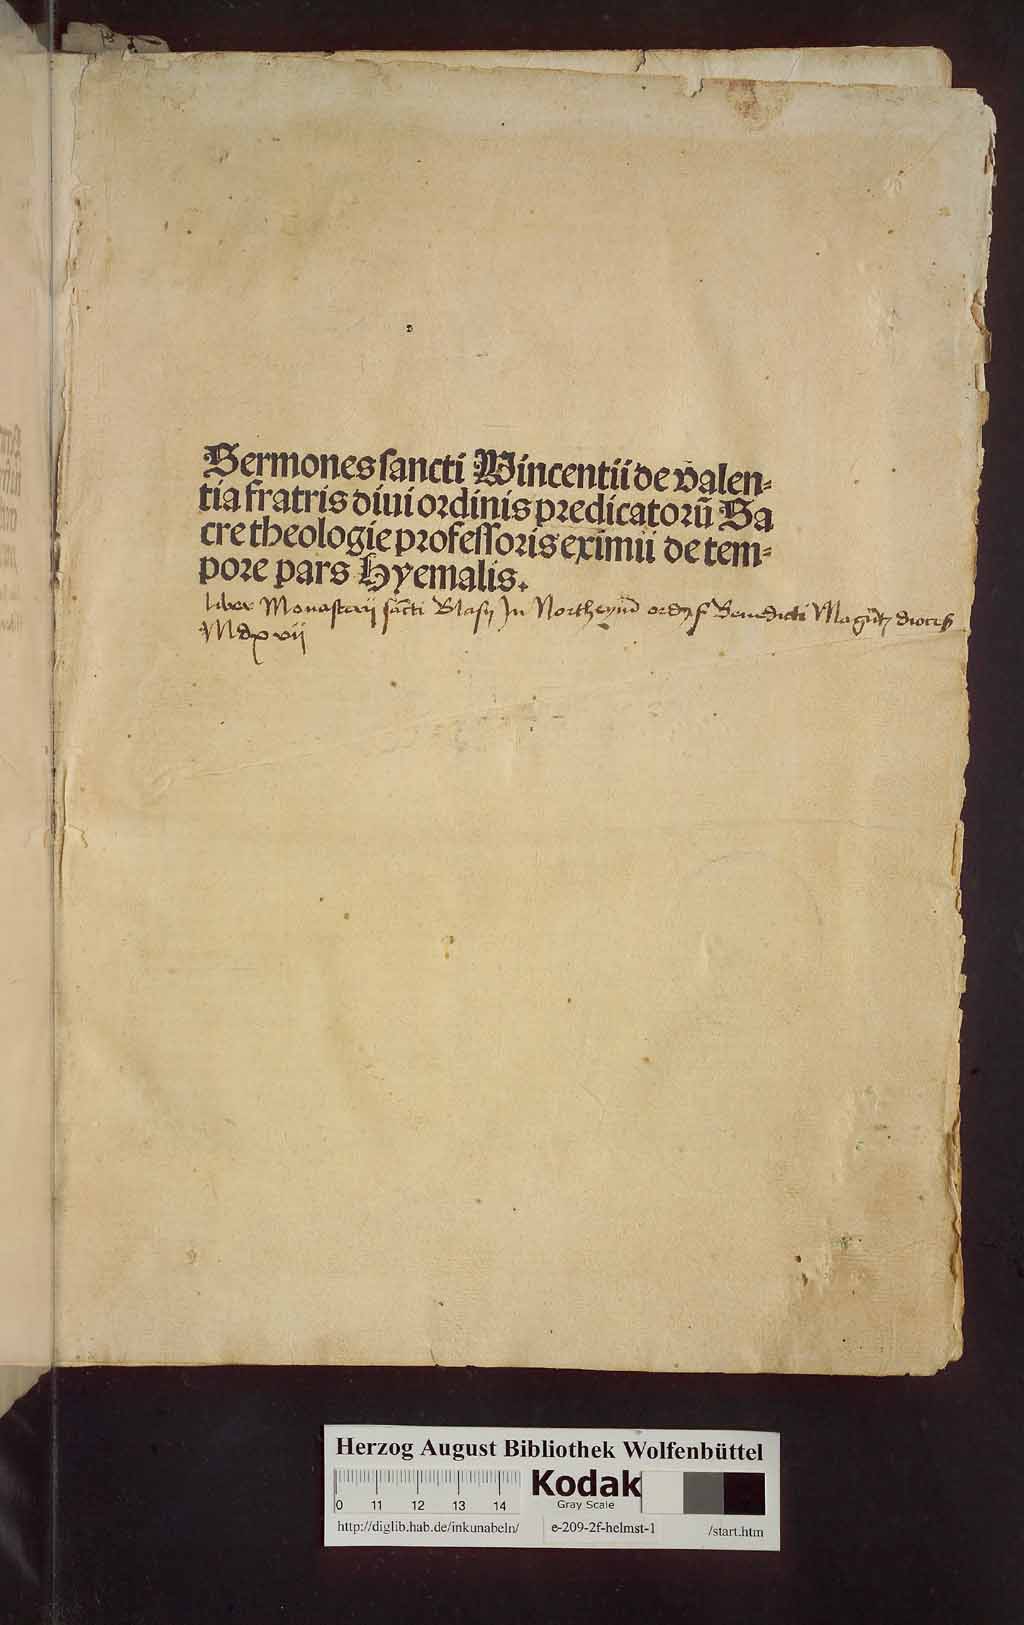 Sermones sancti Vincentii de valen-
tia fratris diui ordinis predicatorū Sa
cre theologie professoris eximii de tem-
pore pars Hyemalis.
liber Monasterij sācti Blasij In Northeym ordīs s Benedicti Magūt dioces
Mdxvij
Herzog August Bibliothek Wolfenbüttel
Kodak
Gray Scale
0 11 12 13 14
http://diglib.hab.de/inkunabeln/ e-209-2f-helmst-1 /start.htm